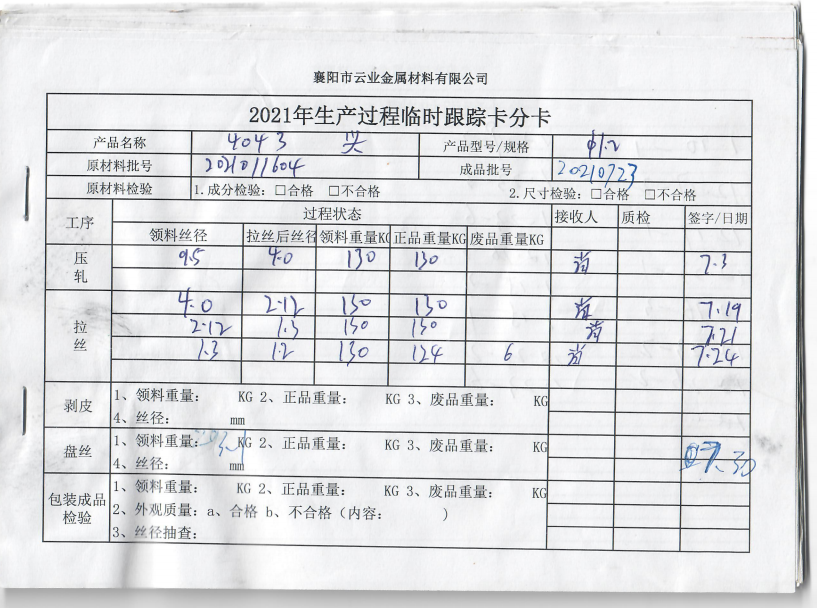 襄阳市云业金属材料有限公司
2021年生产过程临时跟踪卡分卡
产品名称 4043 产品型号/规格 φ1.2
原材料批号 2021011604 成品批号 20210723
原材料检验 1.成分检验：□合格 □不合格 2.尺寸检验：□合格 □不合格
工序 过程状态 接收人 质检 签字/日期
领料丝径 拉丝后丝径 领料重量KG 正品重量KG 废品重量KG
压轧 9.5 4.0 130 130 7.3
拉丝 4.0 2.12 130 130 7.19
2.12 1.3 130 130 7.21
1.3 1.2 130 124 6 7.24
剥皮 1、领料重量： KG 2、正品重量： KG 3、废品重量： KG
4、丝径： mm
盘丝 1、领料重量： KG 2、正品重量： KG 3、废品重量： KG
4、丝径： mm 07.30
包装成品检验 1、领料重量： KG 2、正品重量： KG 3、废品重量： KG
2、外观质量：a、合格 b、不合格（内容： ）
3、丝径抽查：